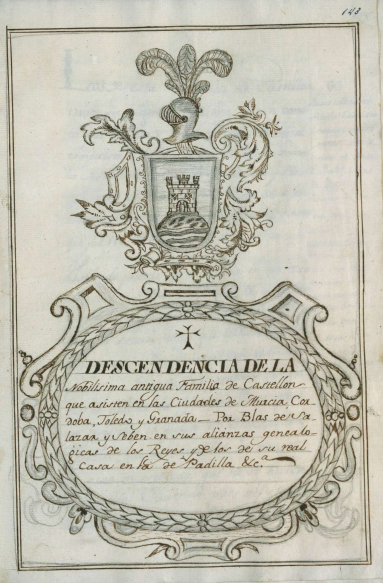 143
DESCENDENCIA DE LA
Nobilisima antigua Familia de Castellon
que asisten en las Ciudades de Murcia, Cor
doba, Toledo y Granada — Por Blas de Sa
lazar, y se ben en sus alianzas genealo-
gicas de los Reyes, y de los de su real
Casa en la de Padilla &c.ª